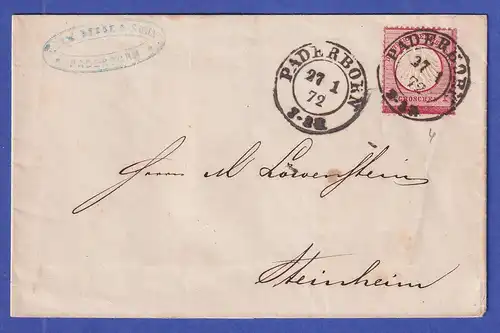 & SOHN
PADERBORN
PADERBORN
27 1
72
PADERBORN
27 1
72
GROSCHEN
4
Herrn M Löwenstein
Steinheim